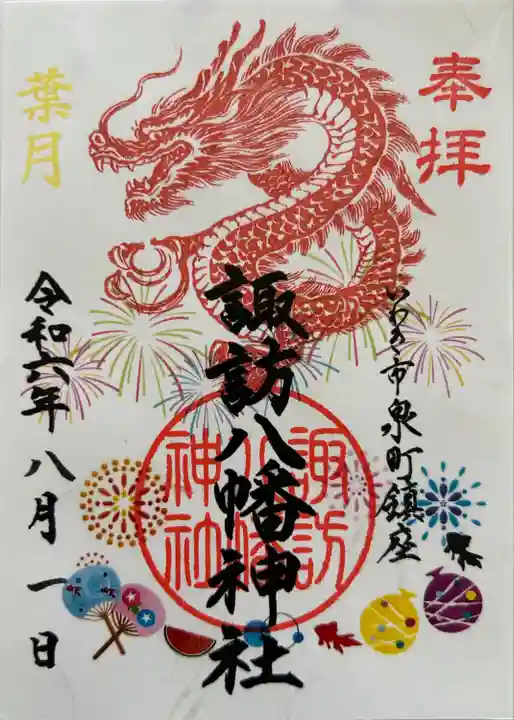 奉拝
いわき市泉町鎮座
諏訪八幡神社
諏訪
八幡
神社
葉月
令和六年八月一日